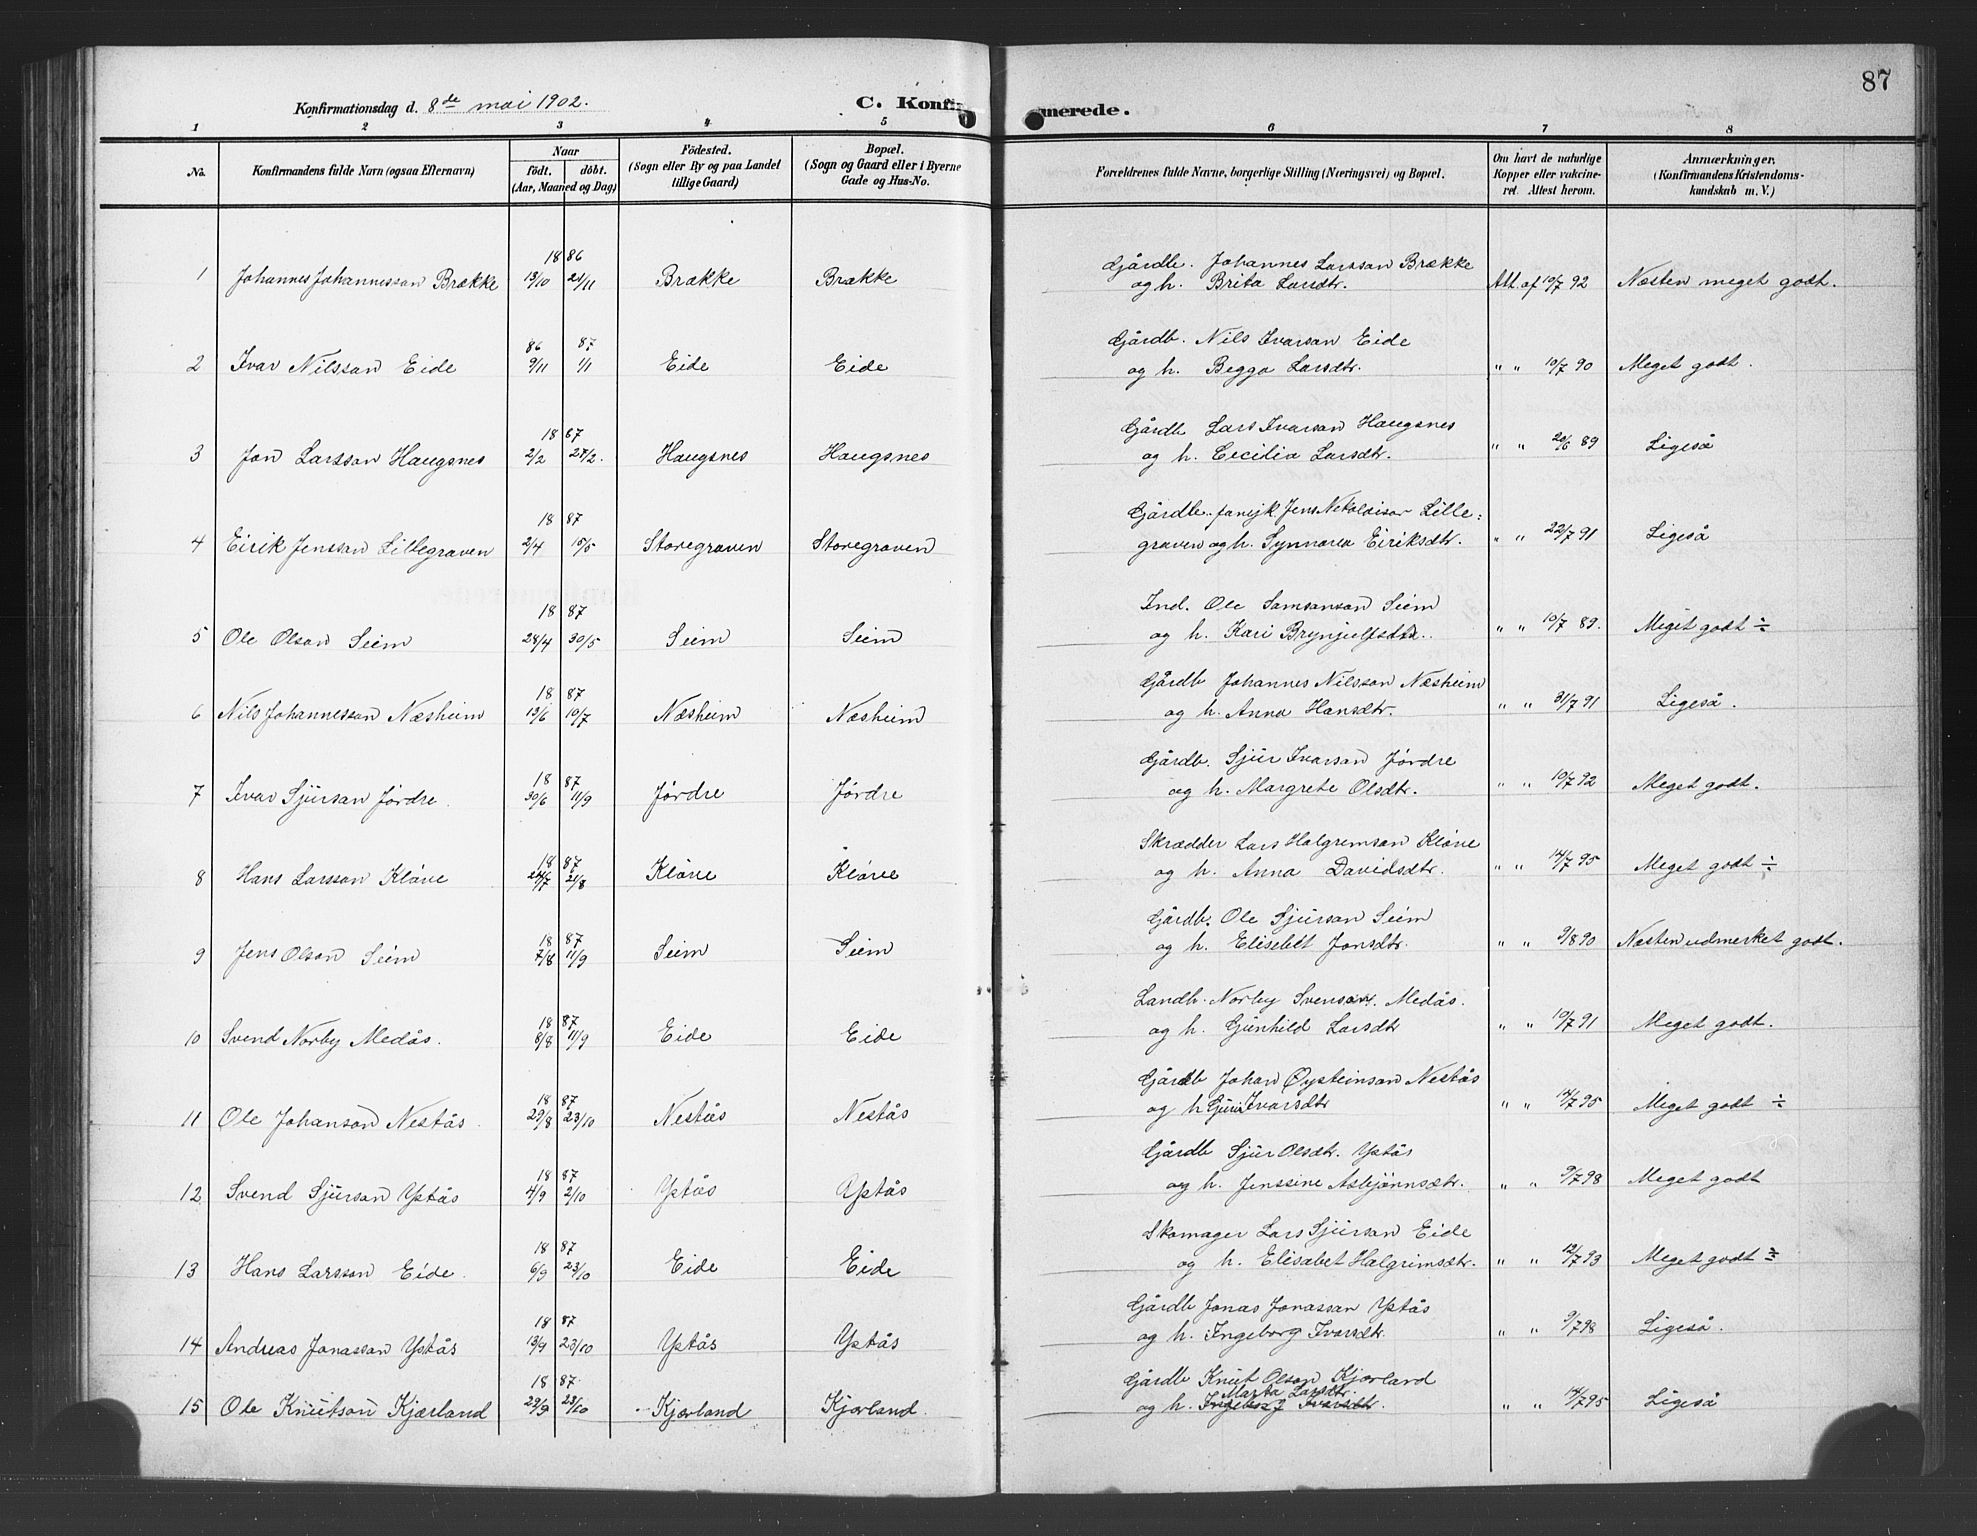 87
Konfirmationsdag d. 8de mai 1902.
C. Konfir merede.
1 2 3 4 5 6 7 8
No. Konfirmandens fulde Navn (ogsaa Efternavn) Naar födt. döbt. (Aar, Maaned og Dag) Födested. (Sogn eller By og paa Landet tillige Gaard) Bopæl. (Sogn og Gaard eller i Byerne Gade og Hus-No. Forældrenes fulde Navne, borgerlige Stilling (Næringsvei) og Bopæl. Om havt de naturlige Kopper eller vakcineret. Attest herom. Anmærkninger. (Konfirmandens Kristendomskundskab m. V.)
18 86 Gårdb. Johannes Larsson Brække
1 Johannes Johannesson Brække 13/10 21/11 Brække Brække og h. Brita Larsdtr. Att. af 10/7 92 Næsten meget godt.
86 87 Gårdb. Nils Ivarson Eide
2 Ivar Nilsson Eide 9/11 1/1 Eide Eide og h. Begga Larsdtr. " " 10/7 90 Meget godt.
18 87 Gårdb Lars Ivarson Haugsnes
3 Jon Larsson Haugsnes 2/2 27/2. Haugsnes Haugsnes og h. Cecilia Larsdtr. " " 20/6 89 Ligeså
18 87 Gårdb. Jens Nikolaisor Lille=
4 Eirik Jensson Lillegraven 2/4 15/5 Storegraven Storegraven graven og h. Synneva Eiriksdtr. " " 22/7 91 Ligeså
18 87 Ind. Ole Samsonson Seim
5 Ole Olson Seim 24/4 30/5 Seim Seim og h. Kari Brynjulfsdtr. " " 10/7 89. Meget godt ÷
18 87 Gårdb Johannes Nilsson Næsheim
6 Nils Johannesson Næsheim 13/6 10/7 Næsheim Næsheim og h. Anna Hansdtr. " " 31/7 91 Ligeså.
18 87 Gårdb. Sjur Ivarson Jördre
7 Ivar Sjurson Jördre. 30/6 11/9 Jördre Jördre og h. Margrete Olsdtr. " " 10/7 92 Meget godt.
18 87 Skrædder Lars Halgrimson Klöve
8 Hans Larsson Klöve 24/7 21/8 Klöve Klöve og h. Anna Davidsdtr. " " 14/7 95 Meget godt ÷
18 87 Gårdb. Ole Sjurson Seim
9 Jens Olson Seim 7/8 11/9 Seim Seim og h. Elisebet Jonsdtr. " " 9/8 90 Næsten udmerket godt.
18 87 Landh. Norby Svenson. Medås.
10 Svend Norby Medås. 8/8 11/9 Eide Eide og h. Gunhild Larsdtr " " 10/7 91 Meget godt.
18 87 Gårdb Johan Øysteinson Nestås
11 Ole Johanson Nestås. 29/8 23/10 Nestås Nestås og h Guri Ivarsdtr " " 14/7 95 Meget godt ÷
18 87 Gårdb Sjur Olsdtr. Ystås
12 Svend Sjurson Ystås 4/9 2/10 Ystås Ystås og h. Jenssine Asbjönnsdtr. " " 9/7 98 Meget godt
18 87 Skomager Lars Sjurson Eide
13 Hans Larsson Eide. 6/9 23/10 Eide Eide og h. Elisabet Halgrimsdtr. " " 12/7 93 Meget godt ÷
18 87 Gårdb Jonas Jonasson Ystås
14 Andreas Jonasson Ystås 13/9 23/10 Ystås Ystås og h. Ingeborg Ivarsdtr. " " 9/7 98 Ligeså.
18 87. Gårdb Knut Olson Kjærland
Marta Larsdtr.
15 Ole Knutson Kjærland 29/9 23/10 Kjærland Kjærland. og h. Ingeborg Ivarsdtr. " " 14/7 95 Ligeså